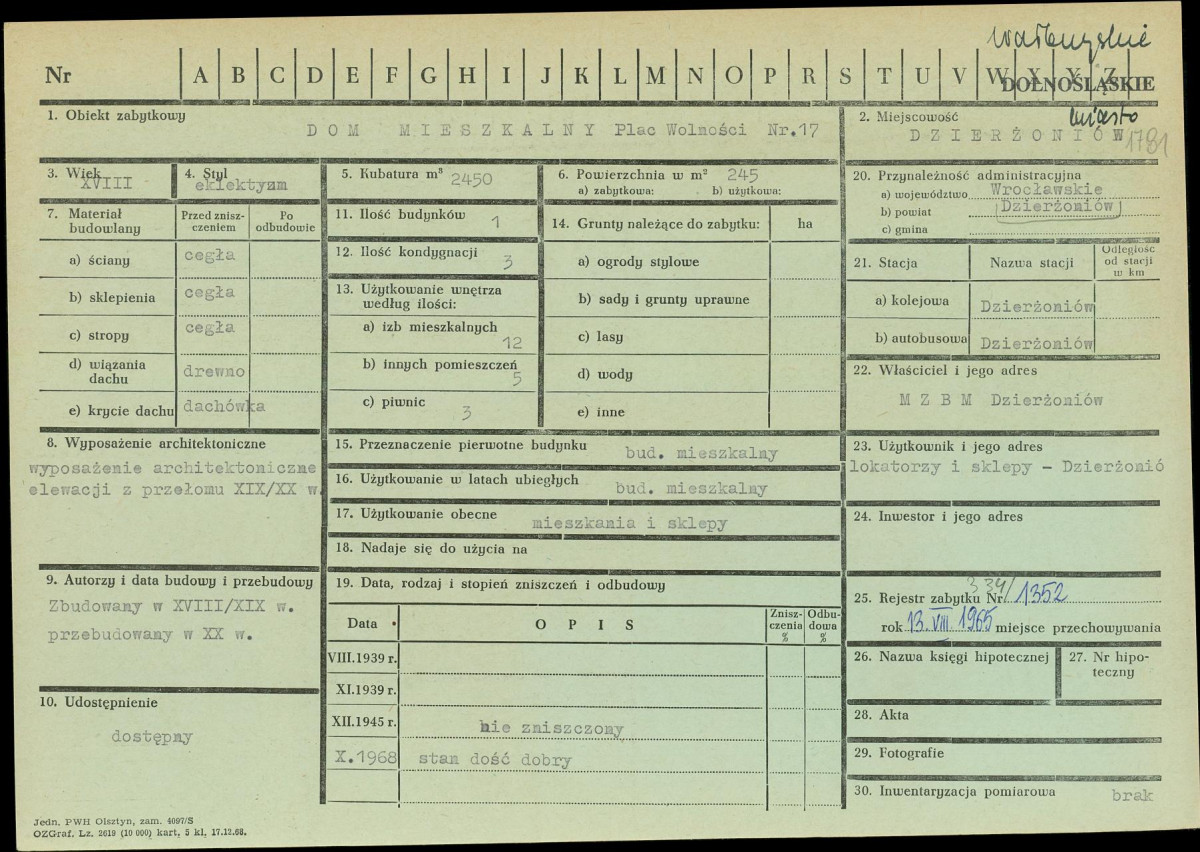 wałbrzyskie
Nr A B C D E F G H I J K L M N O P R S T U V W X Y Z
DOLNOŚLĄSKIE
1. Obiekt zabytkowy
DOM MIESZKALNY Plac Wolności Nr.17
2. Miejscowość
miasto
DZIERŻONIÓW
3. Wiek
XVIII
4. Styl
eklektyzm
5. Kubatura m³ 2450
6. Powierzchnia w m² 245
a) zabytkowa: b) użytkowa:
20. Przynależność administracyjna
a) województwo Wrocławskie
b) powiat Dzierżoniów
c) gmina
7. Materiał budowlany
Przed zniszczeniem
Po odbudowie
a) ściany cegła
b) sklepienia cegła
c) stropy cegła
d) wiązania dachu drewno
e) krycie dachu dachówka
11. Ilość budynków 1
12. Ilość kondygnacji 3
13. Użytkowanie wnętrza według ilości:
a) izb mieszkalnych 12
b) innych pomieszczeń 5
c) piwnic 3
14. Grunty należące do zabytku: ha
a) ogrody stylowe
b) sady i grunty uprawne
c) lasy
d) wody
e) inne
21. Stacja Nazwa stacji Odległość od stacji w km
a) kolejowa Dzierżoniów
b) autobusowa Dzierżoniów
22. Właściciel i jego adres
M Z B M Dzierżoniów
8. Wyposażenie architektoniczne
wyposażenie architektoniczne
elewacji z przełomu XIX/XX w.
15. Przeznaczenie pierwotne budynku bud. mieszkalny
16. Użytkowanie w latach ubiegłych bud. mieszkalny
17. Użytkowanie obecne mieszkania i sklepy
18. Nadaje się do użycia na
23. Użytkownik i jego adres
lokatorzy i sklepy - Dzierżonió
24. Inwestor i jego adres
9. Autorzy i data budowy i przebudowy
Zbudowany w XVIII/XIX w.
przebudowany w XX w.
10. Udostępnienie
dostępny
19. Data, rodzaj i stopień zniszczeń i odbudowy
Data OPIS Zniszczenia % Odbudowa %
VIII.1939 r.
XI.1939 r.
XII.1945 r. nie zniszczony
X.1968 stan dość dobry
25. Rejestr zabytku Nr 334/1352
rok 13.VIII.1965 miejsce przechowywania
26. Nazwa księgi hipotecznej
27. Nr hipoteczny
28. Akta
29. Fotografie
30. Inwentaryzacja pomiarowa brak
Jedn. PWH Olsztyn, zam. 4097/S
OZGraf. Lz. 2619 (10 000) kart, 5 kl. 17.12.68.